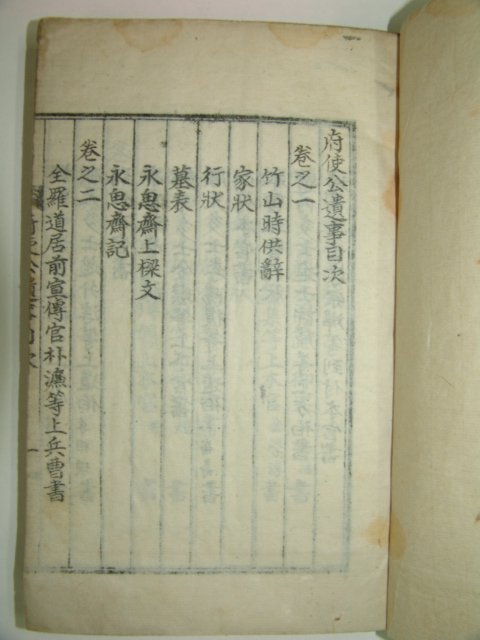 府使公遺事目次
卷之一
竹山時供辭
家狀
行狀
墓表
永思齋上樑文
永思齋記
卷之二
全羅道居前宣傳官朴濂等上兵曹書
府使公遺事目次
一